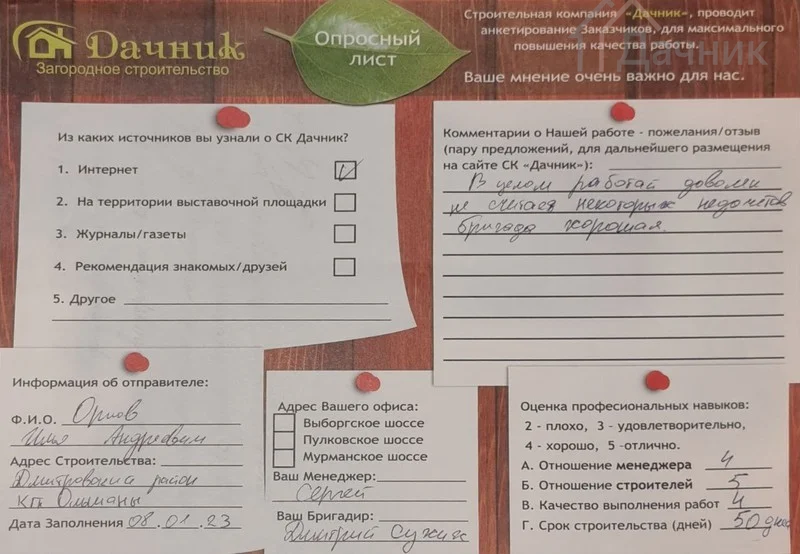 Дачник
Загородное строительство
Опросный
лист
Строительная компания «Дачник», проводит
анкетирование Заказчиков, для максимального
повышения качества работы.
Дачник
Ваше мнение очень важно для нас.
Из каких источников вы узнали о СК Дачник?
1. Интернет
2. На территории выставочной площадки
3. Журналы/газеты
4. Рекомендация знакомых/друзей
5. Другое
Комментарии о Нашей работе - пожелания/отзыв
(пару предложений, для дальнейшего размещения
на сайте СК «Дачник»):
В целом работай доволен
не считая некоторых недочётов
бригада хорошая.
Информация об отправителе:
Ф.И.О. Орлов
Илья Андреевич
Адрес Строительства:
Дмитровский район
КП
Дата Заполнения 08.01.23
Адрес Вашего офиса:
Выборгское шоссе
Пулковское шоссе
Мурманское шоссе
Ваш Менеджер:
Сергей
Ваш Бригадир:
Дмитрий
Оценка професиональных навыков:
2 - плохо, 3 - удовлетворительно,
4 - хорошо, 5 -отлично.
А. Отношение менеджера 4
Б. Отношение строителей 5
В. Качество выполнения работ 4
Г. Срок строительства (дней) 50 дней